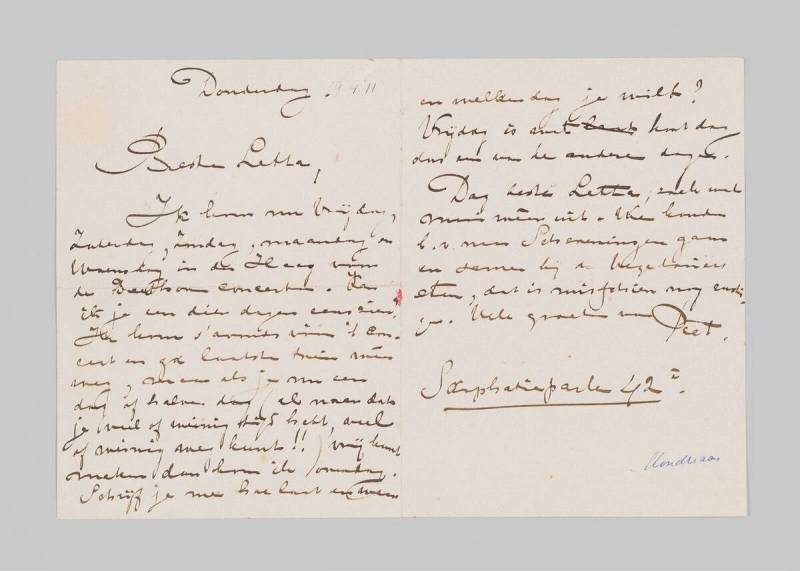 Donderdag. 19.4.11
Beste Letta,
Ik kom nu Vrijdag,
Zaterdag, Zondag, maandag en
Woensdag in den Haag voor
de Beethoven concerten. Kan
ik je een dier dagen eens zien?
Ik kom s'avonds vóór 't con-
cert en ga laatste trein weer
weg, maar als je nu een
dag of halve dag (al naar dat
je veel of weinig tijd hebt, veel
of weinig weg kunt!!) vrij kunt
maken dan kom ik 
Schrijf je me hoe laat en waar
en welke dag je wilt?
Vrijdag is wat kort dag
dus een van de andere dagen.
Dag beste Letta, zoek wat
moois uit. We konden
b.v. naar Scheveningen gaan
en samen bij de Vegetariërs
eten, dat is misschien nog rusti-
ger. Vele groeten van Piet.
Sarphatipark 42
Mondriaan